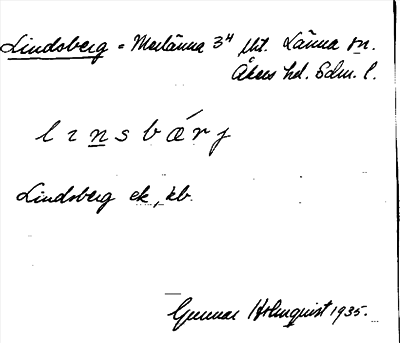 Lindsberg = Merlänna 3⁴ Ut. Länna sn.
Åkers hd. Sdm. l.
lɩnsbærj
Lindsberg ek, kb.
Gunnar Holmquist 1935.